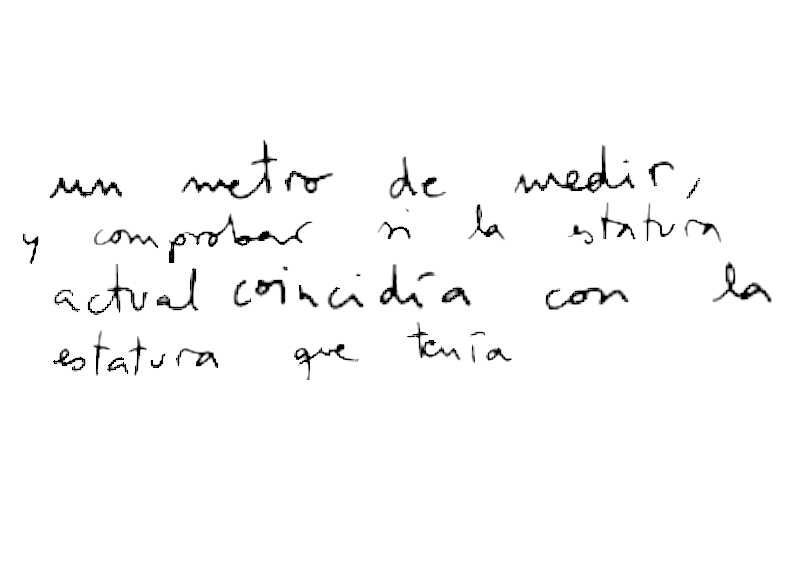 un metro de medir,
y comprobar si la estatura
actual coincidía con la
estatura que tenía